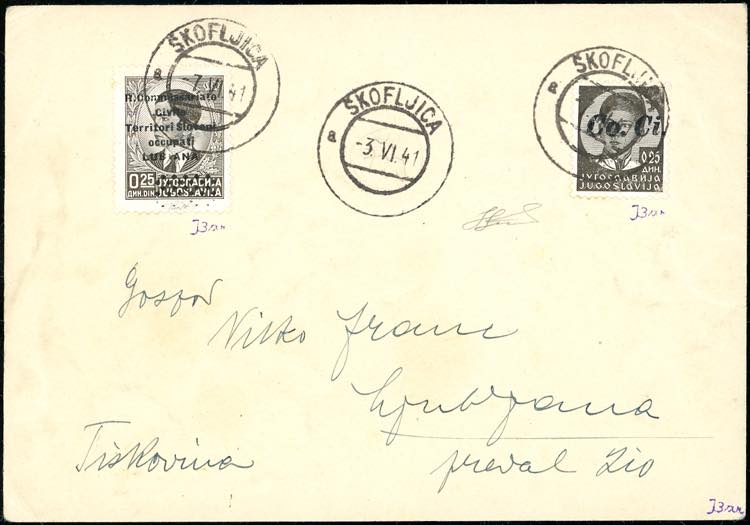 ŠKOFLJICA
a
-7.VI.41
R. Commissariato
Civile
Territori Sloveni
occupati
LUBIANA
0.25
ДИН. DIN.
ЈУГОСЛАВИЈА
JUGOSLAVIJA
ŠKOFLJICA
a
-3.VI.41
ŠKOFLJICA
a
Co. Ci
0.25
ДИН.
ЈУГОСЛАВИЈА
JUGOSLAVIJA
Gospod
Vilko Franc
Ljubljana
Tiskovina